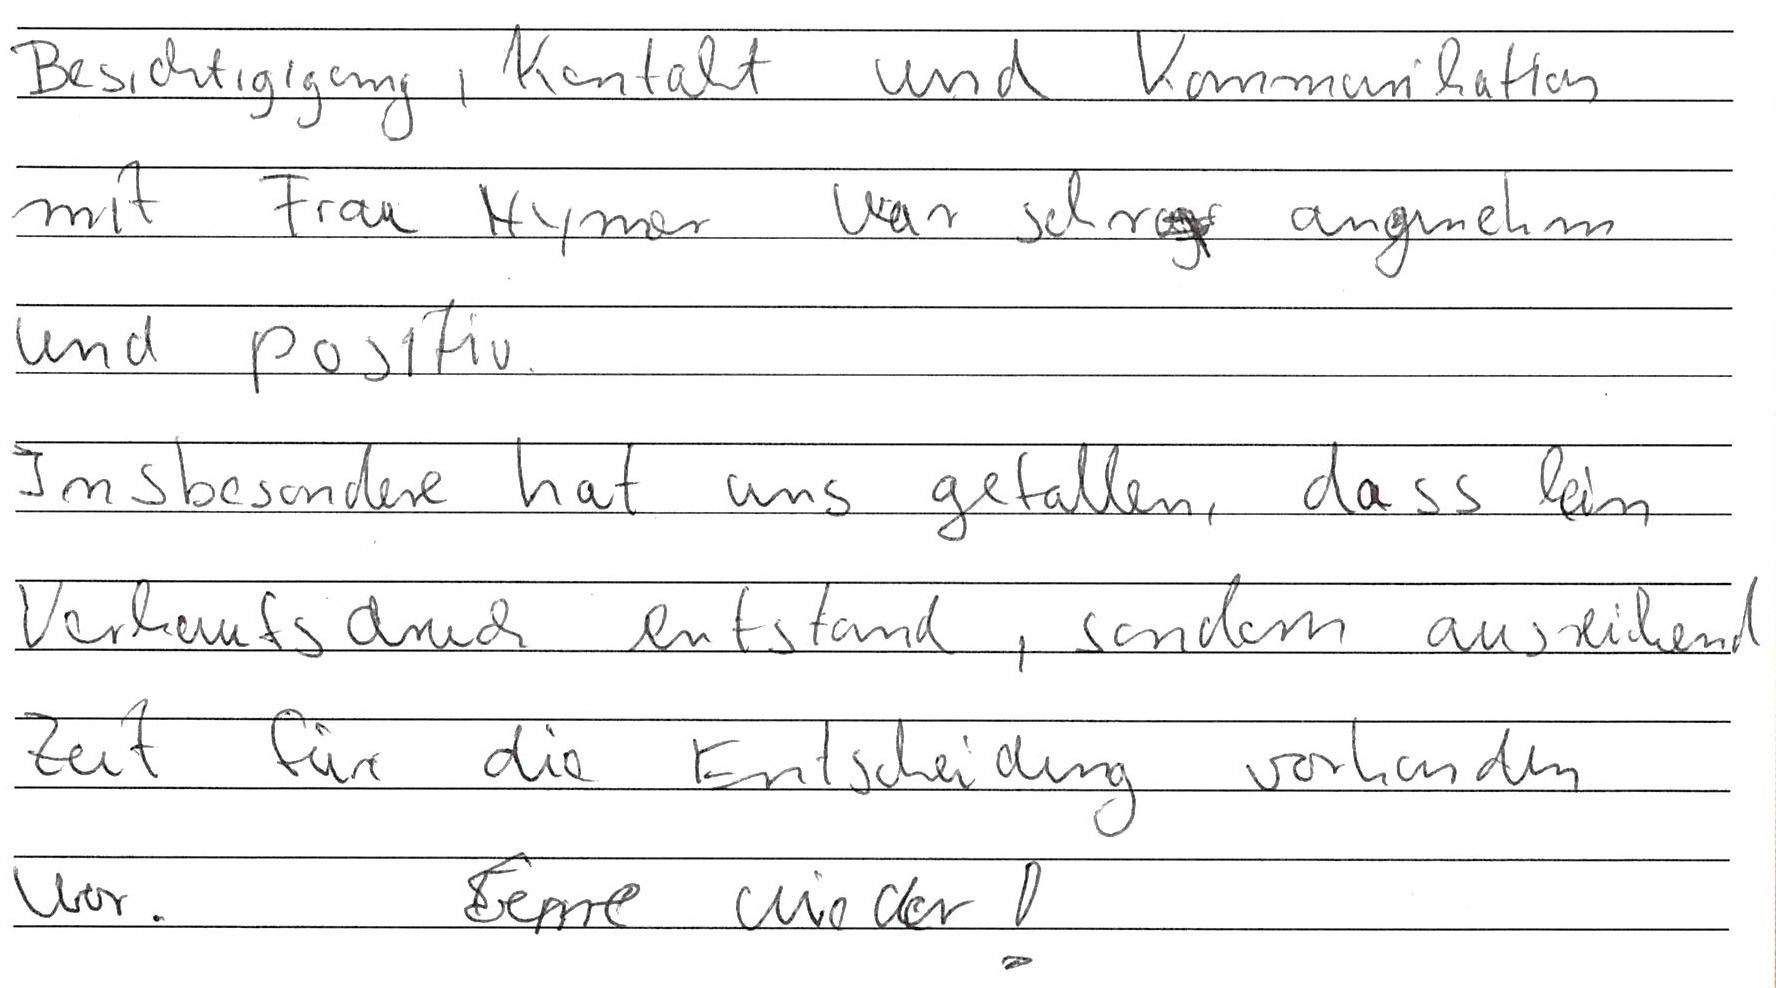 Besichtigigung, Kontakt und Kommunikation
mit Frau Hymer war sehr angenehm
und positiv.
Insbesondere hat uns gefallen, dass kein
Verkaufsdruck entstand, sondern ausreichend
Zeit für die Entscheidung vorhanden
war. Gerne wieder!